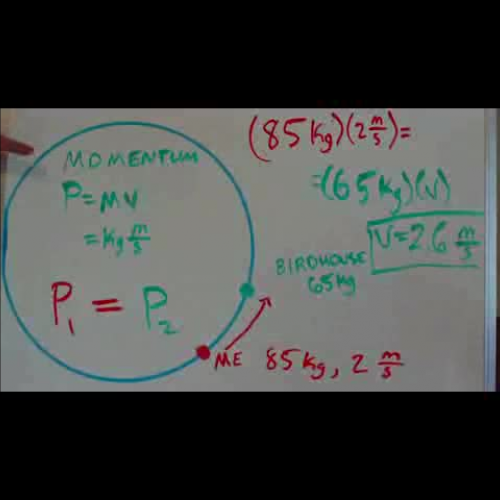 MOMENTUM
P=MV
=Kg m/s
P₁ = P₂
(85Kg)(2 m/s)=
=(65Kg)(V)
V=2.6 m/s
BIRDHOUSE
65Kg
ME 85Kg, 2 m/s